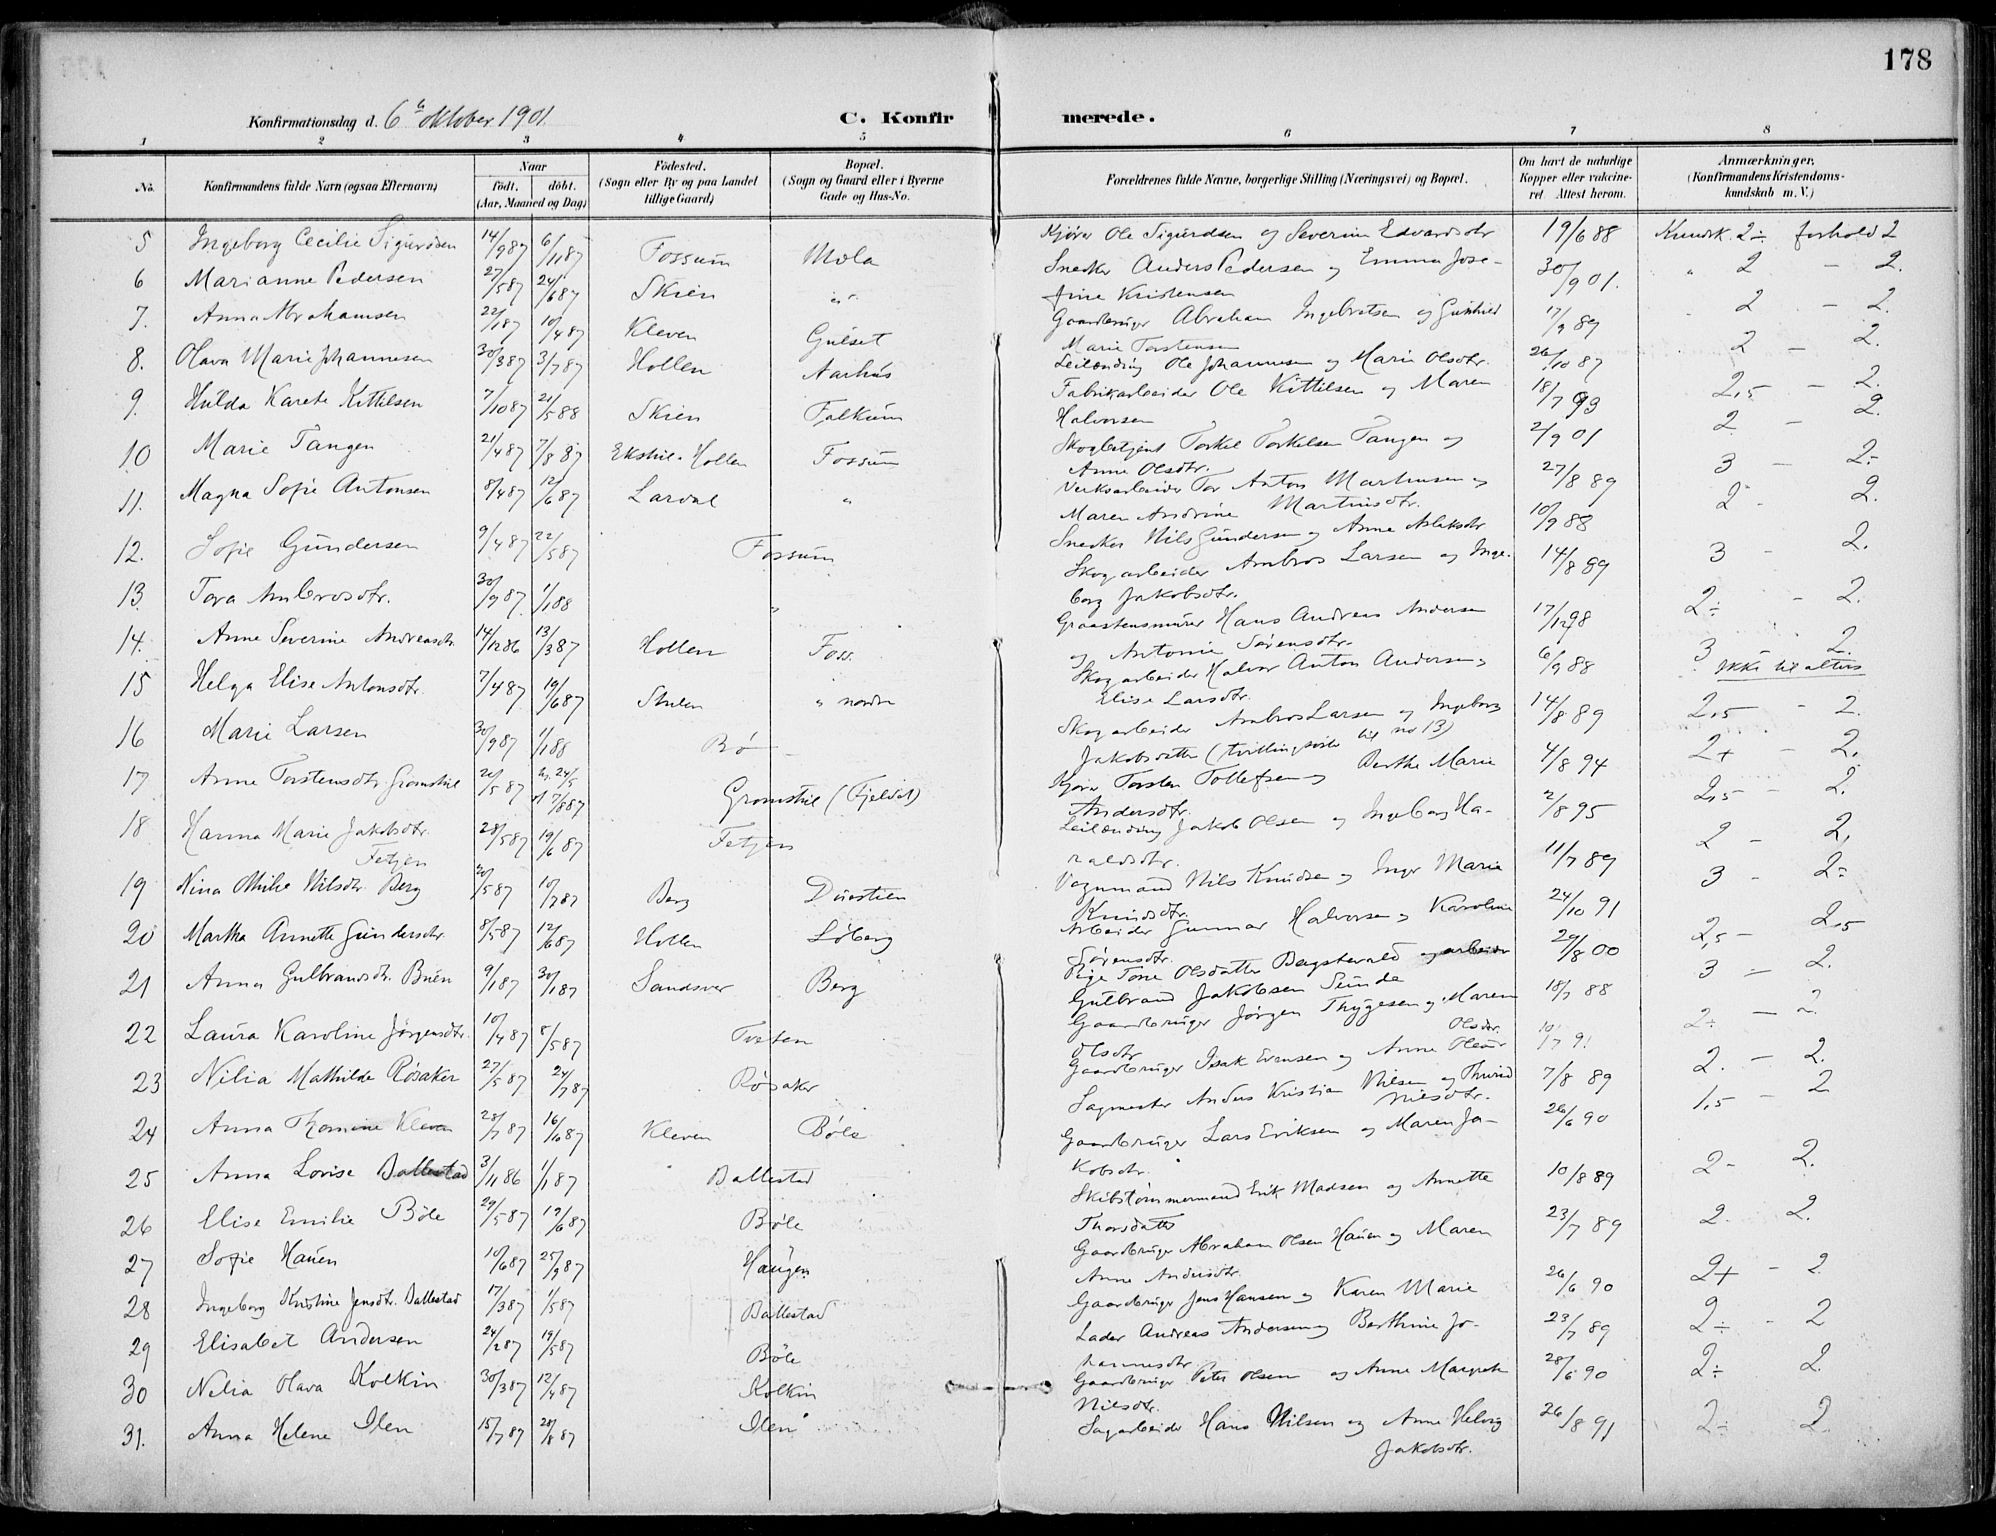 178
Konfirmationsdag d. 6te oktober 1901.
C. Konfirmerede.
1 2 3 4 5 6 7 8
No. Konfirmandens fulde Navn (ogsaa Efternavn) Naar født. døbt. (Aar, Maaned og Dag) Fødested. (Sogn eller By og paa Landet tillige Gaard) Bopæl. (Sogn og Gaard eller i Byerne Gade og Hus-No. Forældrenes fulde Navne, borgerlige Stilling (Næringsvei) og Bopæl. Om havt de naturlige Kopper eller vakcineret Attest herom. Anmærkninger. (Konfirmandens Kristendomskundskab m. V.)
5 Ingeborg Cecilie Sigurdsen 14/9 87 6/11 87 Fossum Mola Kjører Ole Sigurdsen og Severine Edvardsdtr 19/6 88 Kundsk. 2÷ forhold 2
6 Marianne Pedersen 27/5 87 24/6 87 Skien " Snedker Anders Pedersen og Emma Jose- 30/9 01. " 2 – 2.
fine Kristensen
7. Anna Abrahamsen 22/1 87 10/4 87 Kleven Gulset Gaardbruger Abraham Ingebretsen og Gunhild 17/9 89 2 - 2.
Marie Torstensen
8. Olava Marie Johannesen 30/3 87 3/7 87 Hollen Aarhus Leilænding Ole Johannesen og Marie Olsdtr. 26/10 87 2 – 2.
9. Hulda Karete Kittilsen 7/10 87 21/5 88 Skien Falkum Fabrikarbeider Ole Kittilsen og Maren 18/7 93 2,5 – 2.
Halvorsen
10 Marie Tangen 21/4 87 7/8 87 Hollen Fossum Skogbetjent Torkel Torkelsen Tangen og 2/9 01 2 – 2.
Anne Olsdtr.
11. Magna Sofie Antonsen 8/4 87 12/6 87 Lardal " Verksarbeider Tor Anton Marthinsen og 27/8 89 3 – 2÷
Maren Andrine Martinsdtr.
12. Sofie Gundersen 9/4 87 22/5 87 Fossum Snedker Nils Gundersen og Anne Aslaksdtr 10/9 88 2 - 2.
13. Tora Ambrosdtr. 30/9 87. 1/1 88 " Skogarbeider Ambros Larsen og Inge- 14/8 89 3 – 2.
borg Jakobsdtr.
14. Anne Severine Andreasdtr. 14/12 86 13/3 87 Hollen Foss. Graastensmurer Hans Andreas Andersen 17/12 98 2÷ – 2.
og Antonie Sørensdtr.
15 Helga Elise Antonsdtr. 7/4 87 19/6 87 " nordre Skogarbeider Halvor Anton Andersen og 6/9 88 3 2. ikke til alters
Elise Larsdtr.
16 Marie Larsen 30/9 87 1/1 88 Bø Skogarbeider Ambros Larsen og Ingeborg 14/8 89 2,5 - 2.
Jakobsdatter (tvillingsøster til no 13)
17 Anne Torstensdtr. Gromstul 20/5 87 24/5 7/8 87 Gromstul (Fjeldet) Kjører Torsten Tollefsen og Berthe Marie 4/8 94 2+ – 2.
Andersdtr.
18 Hanna Marie Jakobsdtr. 28/5 87 19/6 87 Fetjen Leilænding Jakob Olsen og Ingeborg Ha- 2/8 95 2,5 – 2.
Fetjen raldsdtr.
19 Nina Othilie Nilsdtr. Berg 20/5 87 10/7 87 Berg Duestien Vognmand Nils Knudsen og Inger Marie 11/7 89 2 – 2,
Knudsdtr.
20 Martha Annette Gundersdtr. 8/5 87 12/6 87 Hollen Løberg Arbeider Gunnar Halvorsen og Karoline 24/10 91 3 - 2÷
Sørensdtr.
21 Anna Gulbrandsdtr. Bruen 9/1 87 30/1 87 Sandsver Berg Pige Tone Olsdatter Bagstevold og arbeider 29/8 00 2,5 – 2,5
Gulbrand Jakobsen Sunde
22 Laura Karoline Jørgensdtr. 10/4 87 8/5 87 Tveten Gaardbruger Jørgen Thygesen og Maren 18/7 88 3 – 2.
Olsdtr
23 Nilia Mathilde Røsaker 27/5 87 24/7 87 Røsaker Gaardbruger Isak Evensen og Anne Olsdtr. 10/7 91 2÷ – 2.
24 Anna Thomine Kleven 28/7 87 16/6 87 Kleven Bøle Sagmester Anders Kristian Nilsen og Thurid 7/8 89 2. – 2.
Nilsdtr.
25 Anna Lovise Ballestad 3/11 86 1/1 87 Ballestad Gaardbruger Lars Eriksen og Maren Ja- 26/6 90 1,5 – 2
kobsdtr.
26 Elise Emilie Bøle 29/5 87 19/6 87 Bøle Skibstømmermand Erik Madsen og Annette 10/8 89 2- 2.
Thorsdatter
27 Sofie Hauen 10/6 87 25/9 87 Haugen Gaardbruger Abraham Olsen Hauen og Maren 23/7 89 2. 2.
Anne Andersdtr.
28 Ingeborg Kristine Jensdtr. Ballestad 17/3 87 1/5 87 Ballestad Gaardbruger Jens Hansen og Karen Marie 26/6 90 2+ - 2
29 Elisabet Andersen 24/2 87 19/5 87 Bøle Lader Andreas Andersen og Berthine Jo- 23/7 89 2÷ - 2
hannesdtr.
30 Nelia Olava Kolkin 30/3 87 12/4 87 Kolkin Gaardbruger Peter Olsen og Anne Margrete 28/6 90 2÷ 2.
Nilsdtr.
31. Anna Helene Ilen 15/7 87 28/8 87 Ilen Sagarbeider Hans Nilsen og Anne Helvig 26/8 91 2÷ 2.
Jakobsdtr.